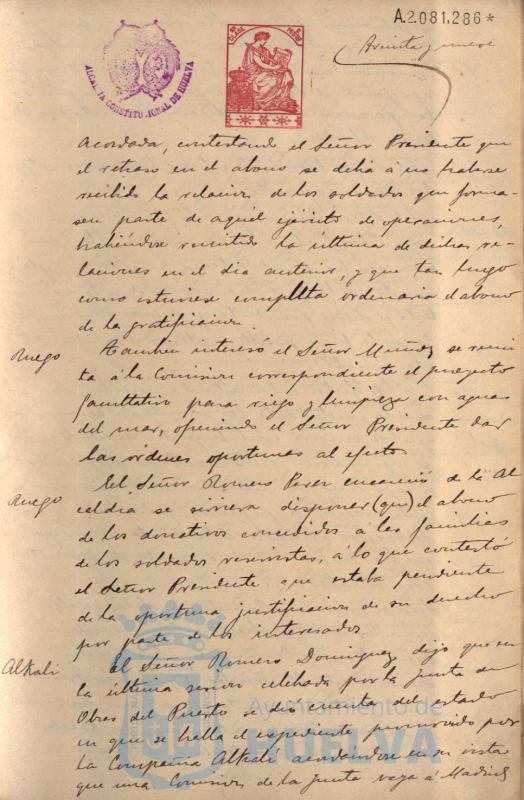 A.2.081,286*
treinta y nueve
ALCALDIA CONSTITUCIONAL DE HUELVA
acordada, contestando el Señor Presidente que
el retraso en el abono se debia á no haberse
recibido la relacion de los soldados que forma-
sen parte de aquel ejército de operaciones,
habiéndose remitido la última de dichas re-
laciones en el dia anterior, y que tan luego
como estuviese completa ordenaria el abono
de la gratificacion.
Ruego
Tambien interesó el Señor Muñoz se remi-
ta á la Comision correspondiente el proyecto
facultativo para riego y limpieza con aguas
del mar, ofreciendo el Señor Presidente dar
las órdenes oportunas al efecto.
Ruego
El Señor Romero Perez encareció de la Al
caldia se sirviera disponer (que) el abono
de los donativos concedidos á las familias
de los soldados reservistas, á lo que contestó
el Señor Presidente que estaba pendiente
de la oportuna justificacion de su derecho
por parte de los interesados.
Alkali
El Señor Romero Dominguez dijo que en
la última sesion celebrada por la Junta de
Obras del Puerto se dió cuenta del estado
en que se halla el expediente promovido por
la Compañia Alkali acordándose en su vista
que una Comision de la Junta vaya á Madrid
Ayuntamiento de
HUELVA